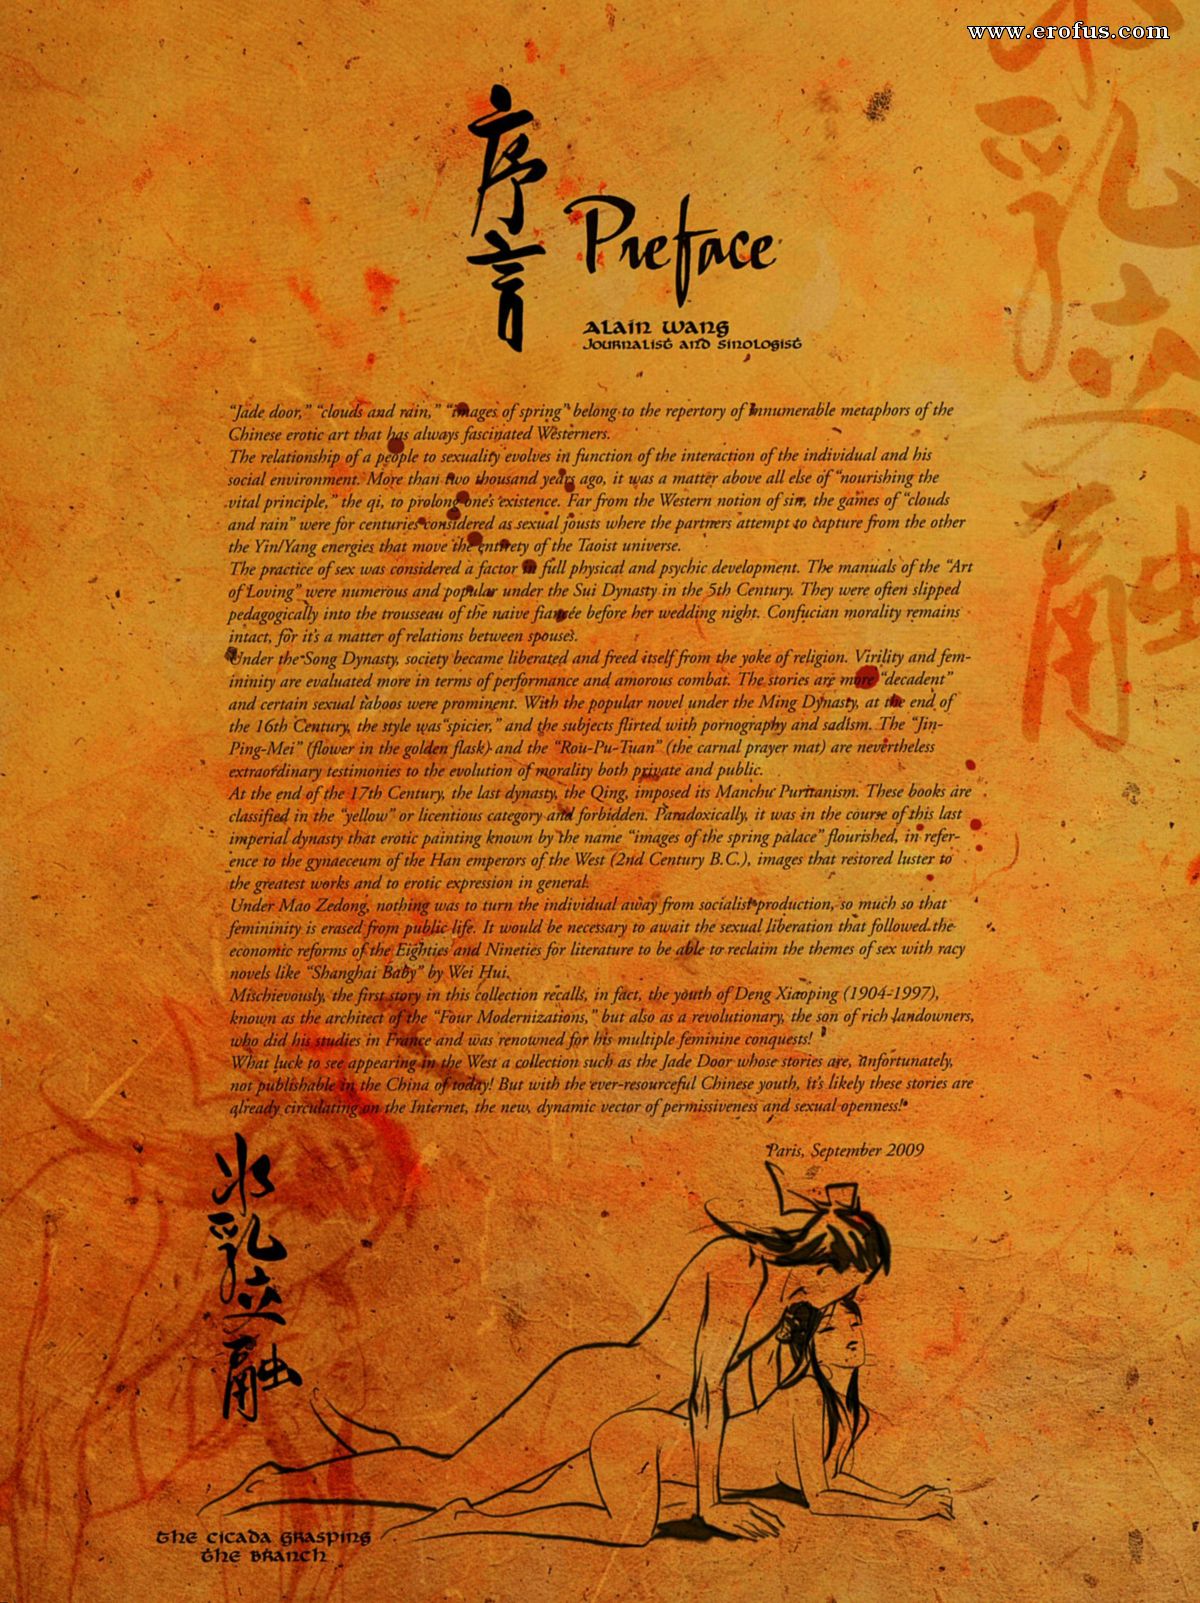 www.erofus.com
序言
Preface
Alain Wang
Journalist and Sinologist
“Jade door,” “clouds and rain,” “images of spring” belong to the repertory of innumerable metaphors of the
Chinese erotic art that has always fascinated Westerners.
The relationship of a people to sexuality evolves in function of the interaction of the individual and his
social environment. More than two thousand years ago, it was a matter above all else of “nourishing the
vital principle,” the qi, to prolong one's existence. Far from the Western notion of sin, the games of “clouds
and rain” were for centuries considered as sexual jousts where the partners attempt to capture from the other
the Yin/Yang energies that move the entirety of the Taoist universe.
The practice of sex was considered a factor in full physical and psychic development. The manuals of the “Art
of Loving” were numerous and popular under the Sui Dynasty in the 5th Century. They were often slipped
pedagogically into the trousseau of the naive fiancée before her wedding night. Confucian morality remains
intact, for it's a matter of relations between spouses.
Under the Song Dynasty, society became liberated and freed itself from the yoke of religion. Virility and fem-
ininity are evaluated more in terms of performance and amorous combat. The stories are more “decadent”
and certain sexual taboos were prominent. With the popular novel under the Ming Dynasty, at the end of
the 16th Century, the style was “spicier,” and the subjects flirted with pornography and sadism. The “Jin-
Ping-Mei” (flower in the golden flask) and the “Rou-Pu-Tuan” (the carnal prayer mat) are nevertheless
extraordinary testimonies to the evolution of morality both private and public.
At the end of the 17th Century, the last dynasty, the Qing, imposed its Manchu Puritanism. These books are
classified in the “yellow” or licentious category and forbidden. Paradoxically, it was in the course of this last
imperial dynasty that erotic painting known by the name “images of the spring palace” flourished, in refer-
ence to the gynaeceum of the Han emperors of the West (2nd Century B.C.), images that restored luster to
the greatest works and to erotic expression in general.
Under Mao Zedong, nothing was to turn the individual away from socialist production, so much so that
femininity is erased from public life. It would be necessary to await the sexual liberation that followed the
economic reforms of the Eighties and Nineties for literature to be able to reclaim the themes of sex with racy
novels like “Shanghai Baby” by Wei Hui.
Mischievously, the first story in this collection recalls, in fact, the youth of Deng Xiaoping (1904-1997),
known as the architect of the “Four Modernizations,” but also as a revolutionary, the son of rich landowners,
who did his studies in France and was renowned for his multiple feminine conquests!
What luck to see appearing in the West a collection such as the Jade Door whose stories are, unfortunately,
not publishable in the China of today! But with the ever-resourceful Chinese youth, it's likely these stories are
already circulating on the Internet, the new, dynamic vector of permissiveness and sexual openness!
Paris, September 2009
水乳立融
水乳立融
The Cicada Grasping
the Branch